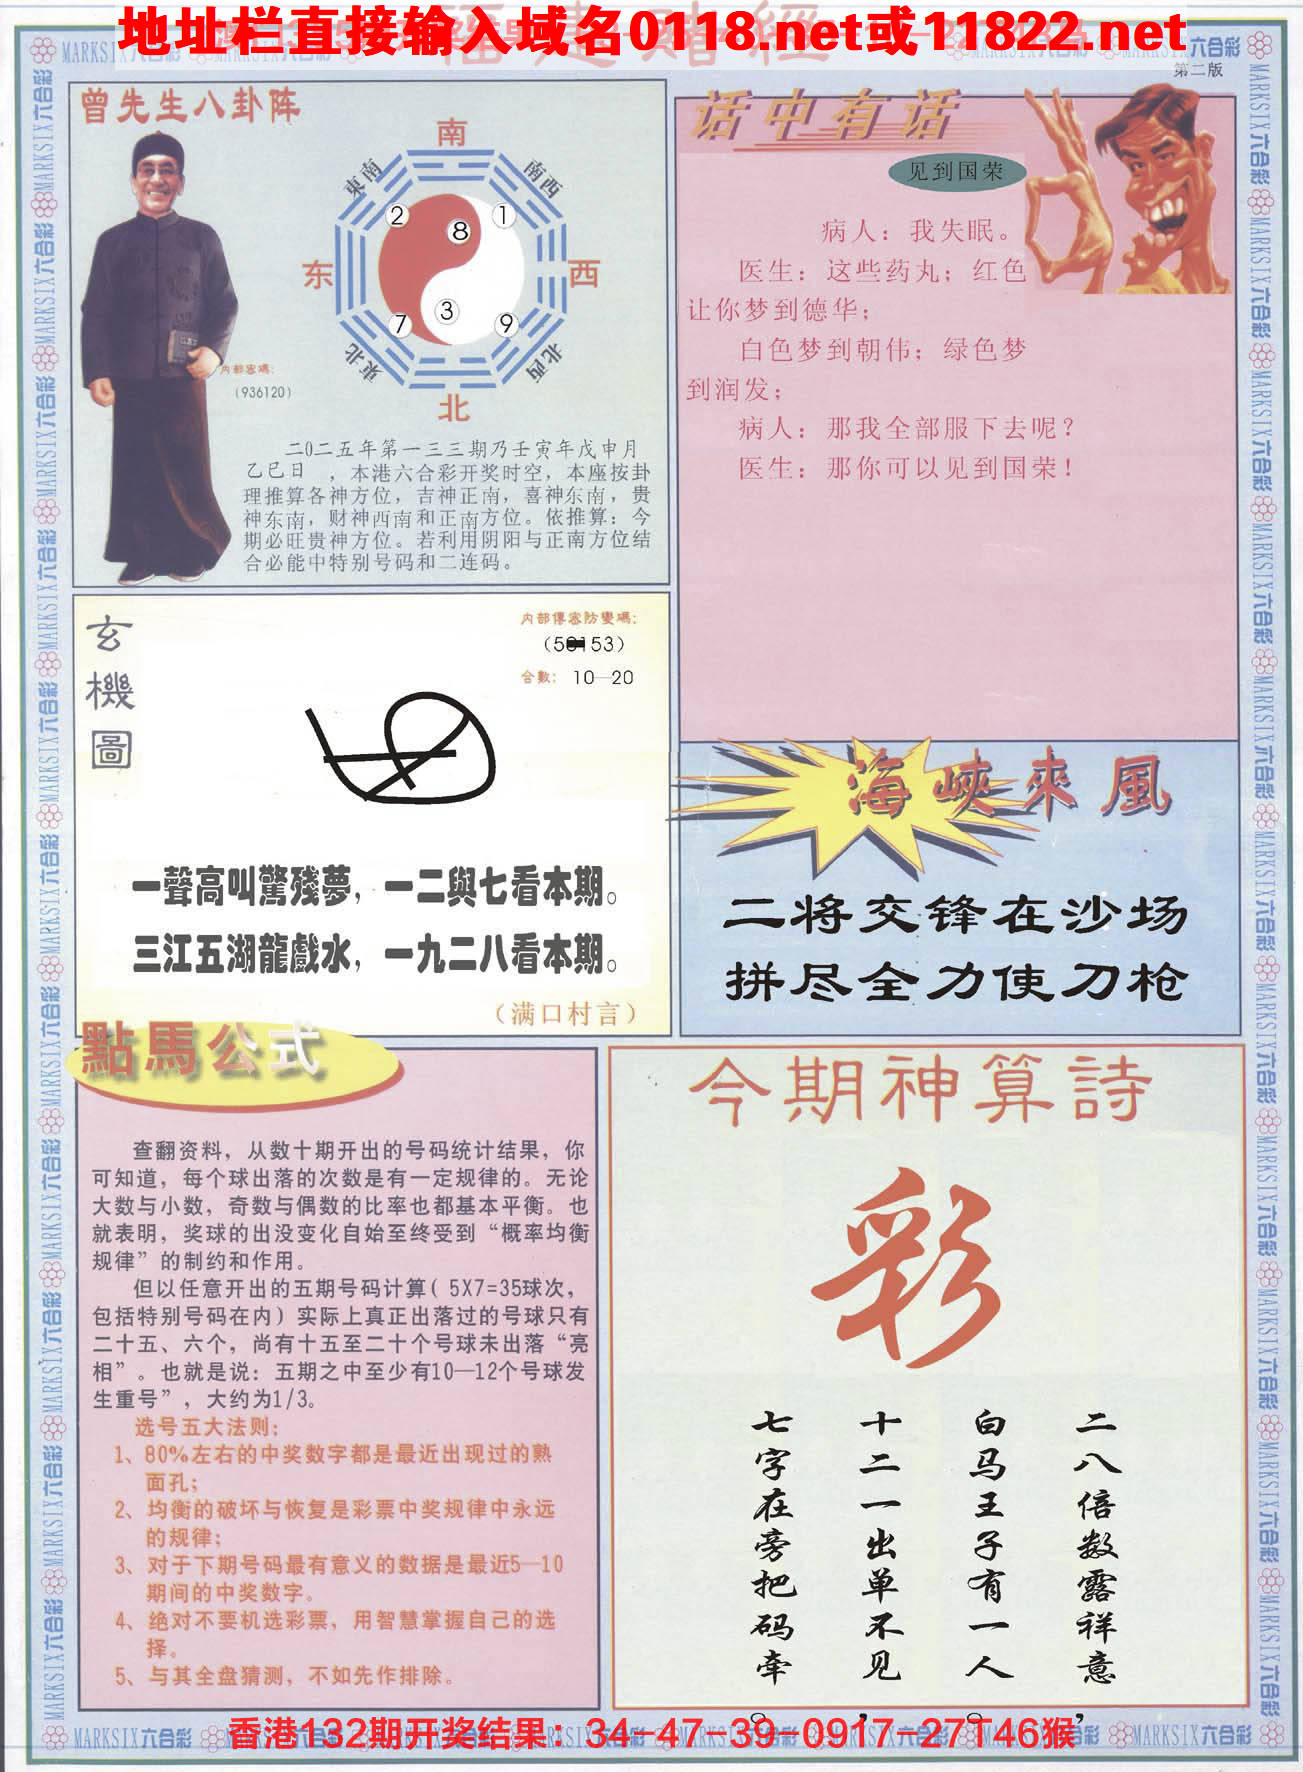 地址栏直接输入域名0118.net或11822.net
第二版
曾先生八卦阵
南
東南
南西
2
1
8
东
西
3
7
9
東北
北西
北
内部密碼：
（936120）
二0二五年第一三三期乃壬寅年戊申月
乙巳日 ，本港六合彩开奖时空，本座按卦
理推算各神方位，吉神正南，喜神东南，贵
神东南，财神西南和正南方位。依推算：今
期必旺贵神方位。若利用阴阳与正南方位结
合必能中特别号码和二连码。
话中有话
见到国荣
病人：我失眠。
医生：这些药丸；红色
让你梦到德华；
白色梦到朝伟；绿色梦
到润发；
病人：那我全部服下去呢？
医生：那你可以见到国荣！
玄機圖
内部傳密防變碼：
合數： 10—20
一聲高叫驚殘夢，一二與七看本期。
三江五湖龍戲水，一九二八看本期。
（满口村言）
海峽來風
二将交锋在沙场
拼尽全力使刀枪
點馬公式
查翻资料，从数十期开出的号码统计结果，你
可知道，每个球出落的次数是有一定规律的。无论
大数与小数，奇数与偶数的比率也都基本平衡。也
就表明，奖球的出没变化自始至终受到“概率均衡
规律”的制约和作用。
但以任意开出的五期号码计算（5X7=35球次，
包括特别号码在内）实际上真正出落过的号球只有
二十五、六个，尚有十五至二十个号球未出落“亮
相”。也就是说：五期之中至少有10—12个号球发
生重号”，大约为1/3。
选号五大法则：
1、80%左右的中奖数字都是最近出现过的熟
面孔；
2、均衡的破坏与恢复是彩票中奖规律中永远
的规律；
3、对于下期号码最有意义的数据是最近5—10
期间的中奖数字。
4、绝对不要机选彩票，用智慧掌握自己的选
择。
5、与其全盘猜测，不如先作排除。
今期神算詩
彩
二八倍数露祥意，
白马王子有一人。
十二一出单不见，
七字在旁把码牵。
香港132期开奖结果：34-47-39-0917-27T46猴
MARKSIX六合彩